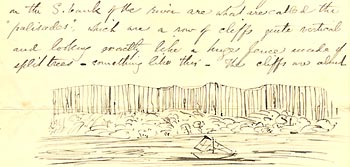 on the S. bank of the river are what are called the
"palisades", which are a row of cliffs quite vertical
and looking exactly like a huge fence made of
split trees - something like this - The cliffs are about